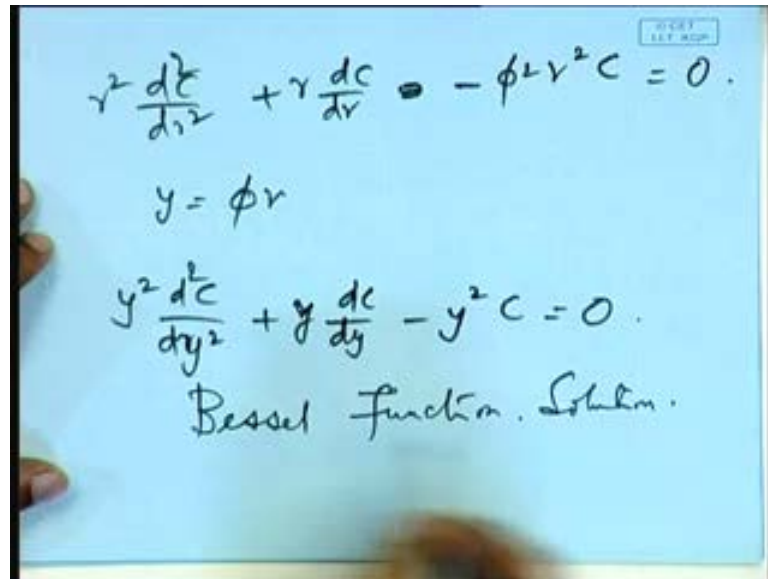 © CET
I.I.T. KGP
r² d²c/dr² + r dc/dr - ϕ² r² C = 0.
y = ϕr
y² d²c/dy² + y dc/dy - y² C = 0.
Bessel Function. Solution.